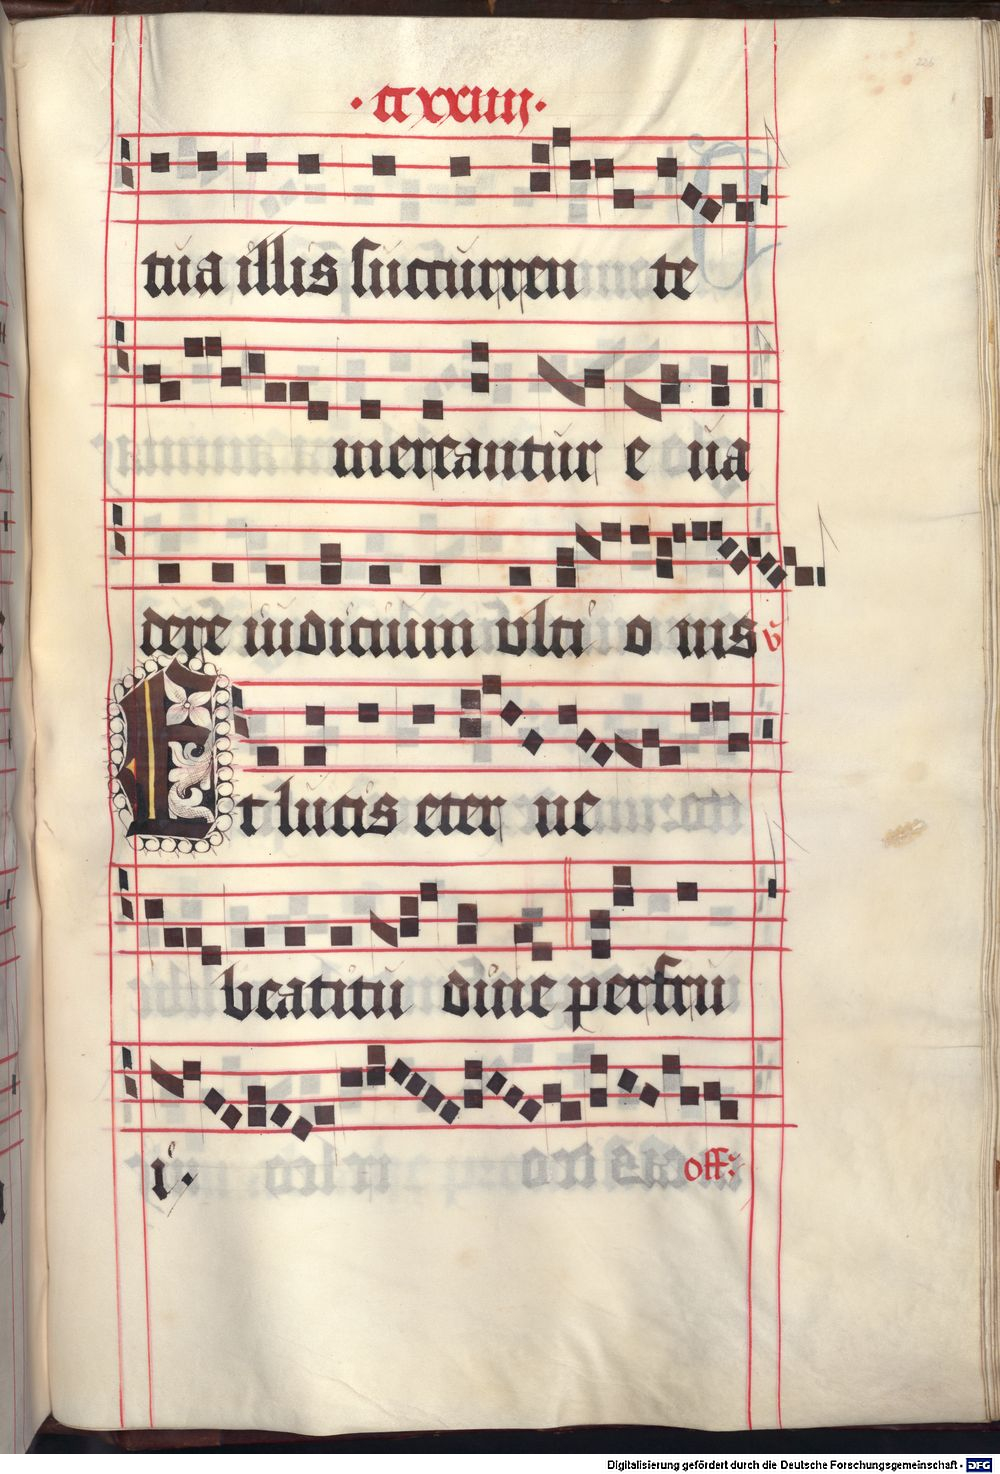 ·ccxxiiij·
tua illis succurren te
mereantur e ua
dere iudicium vlti o nis v̆
Et lucis eter ne
beatitu dine perfru
i. off:
226
Digitalisierung gefördert durch die Deutsche Forschungsgemeinschaft - DFG